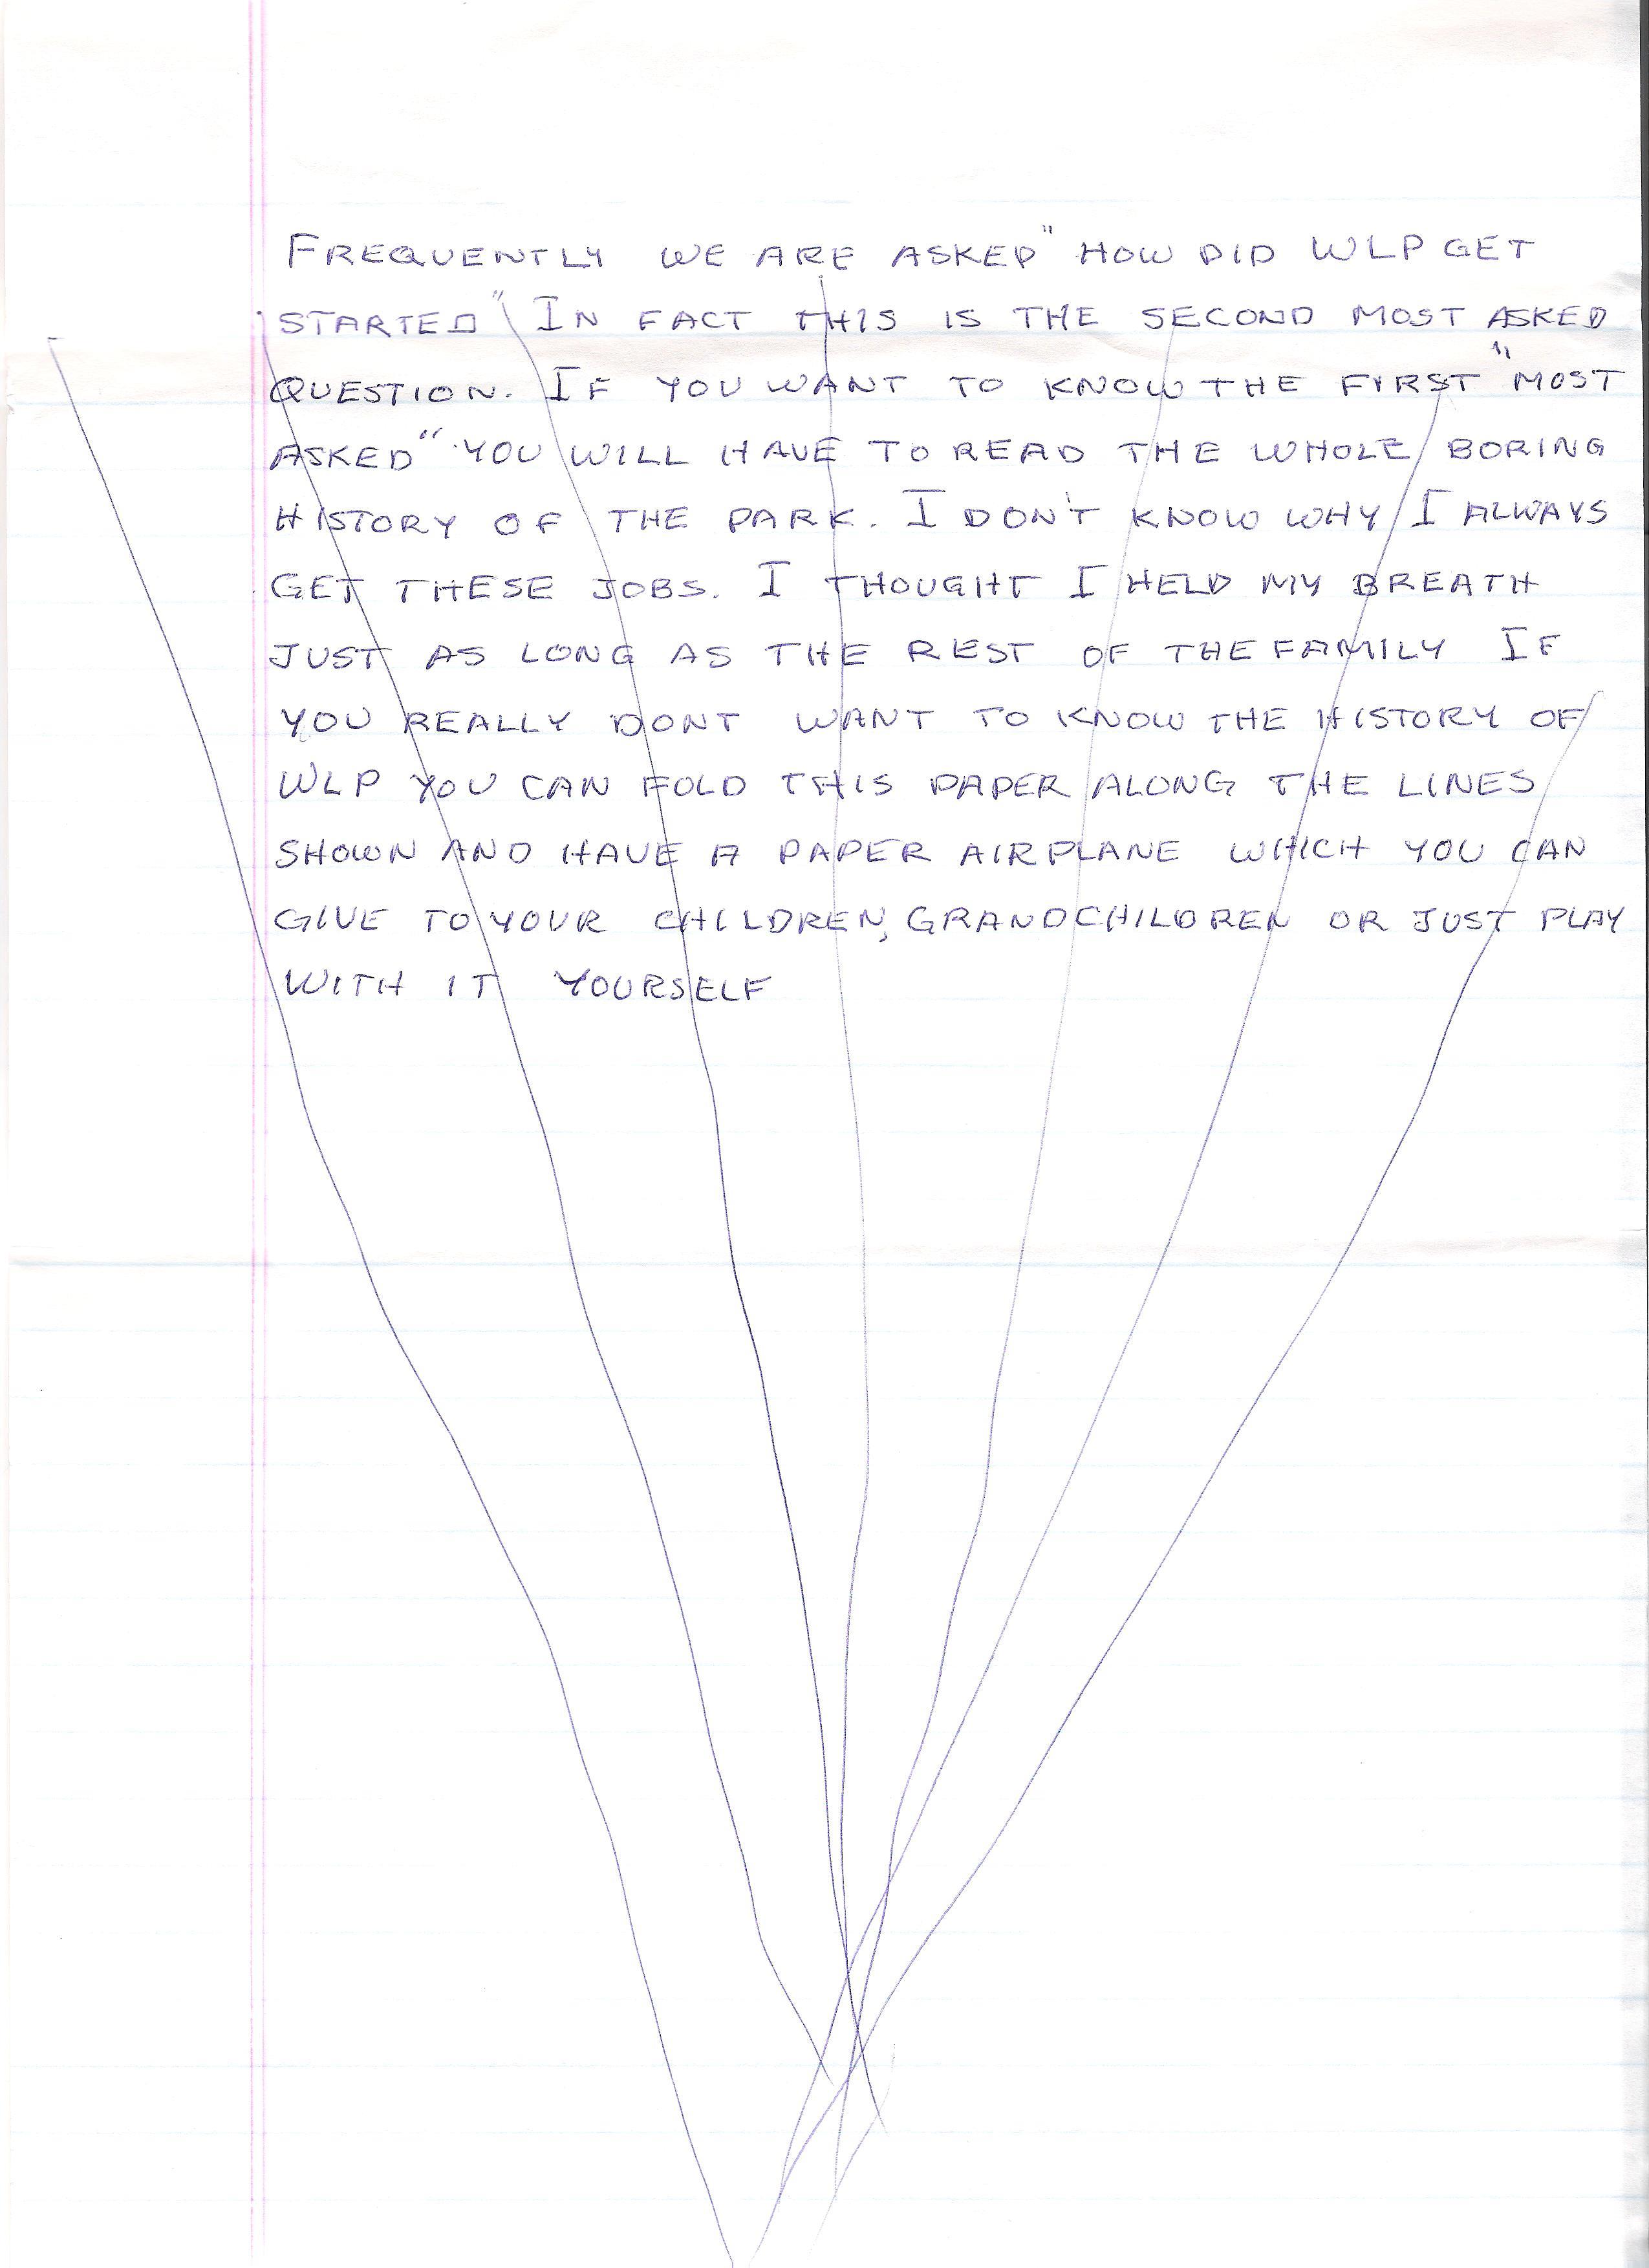 FREQUENTLY WE ARE ASKED "HOW DID WLP GET
STARTED" IN FACT THIS IS THE SECOND MOST ASKED
QUESTION. IF YOU WANT TO KNOW THE FIRST "MOST
ASKED" YOU WILL HAVE TO READ THE WHOLE BORING
HISTORY OF THE PARK. I DON'T KNOW WHY I ALWAYS
GET THESE JOBS. I THOUGHT I HELD MY BREATH
JUST AS LONG AS THE REST OF THE FAMILY IF
YOU REALLY DONT WANT TO KNOW THE HISTORY OF
WLP YOU CAN FOLD THIS PAPER ALONG THE LINES
SHOWN AND HAVE A PAPER AIRPLANE WHICH YOU CAN
GIVE TO YOUR CHILDREN, GRANDCHILDREN OR JUST PLAY
WITH IT YOURSELF